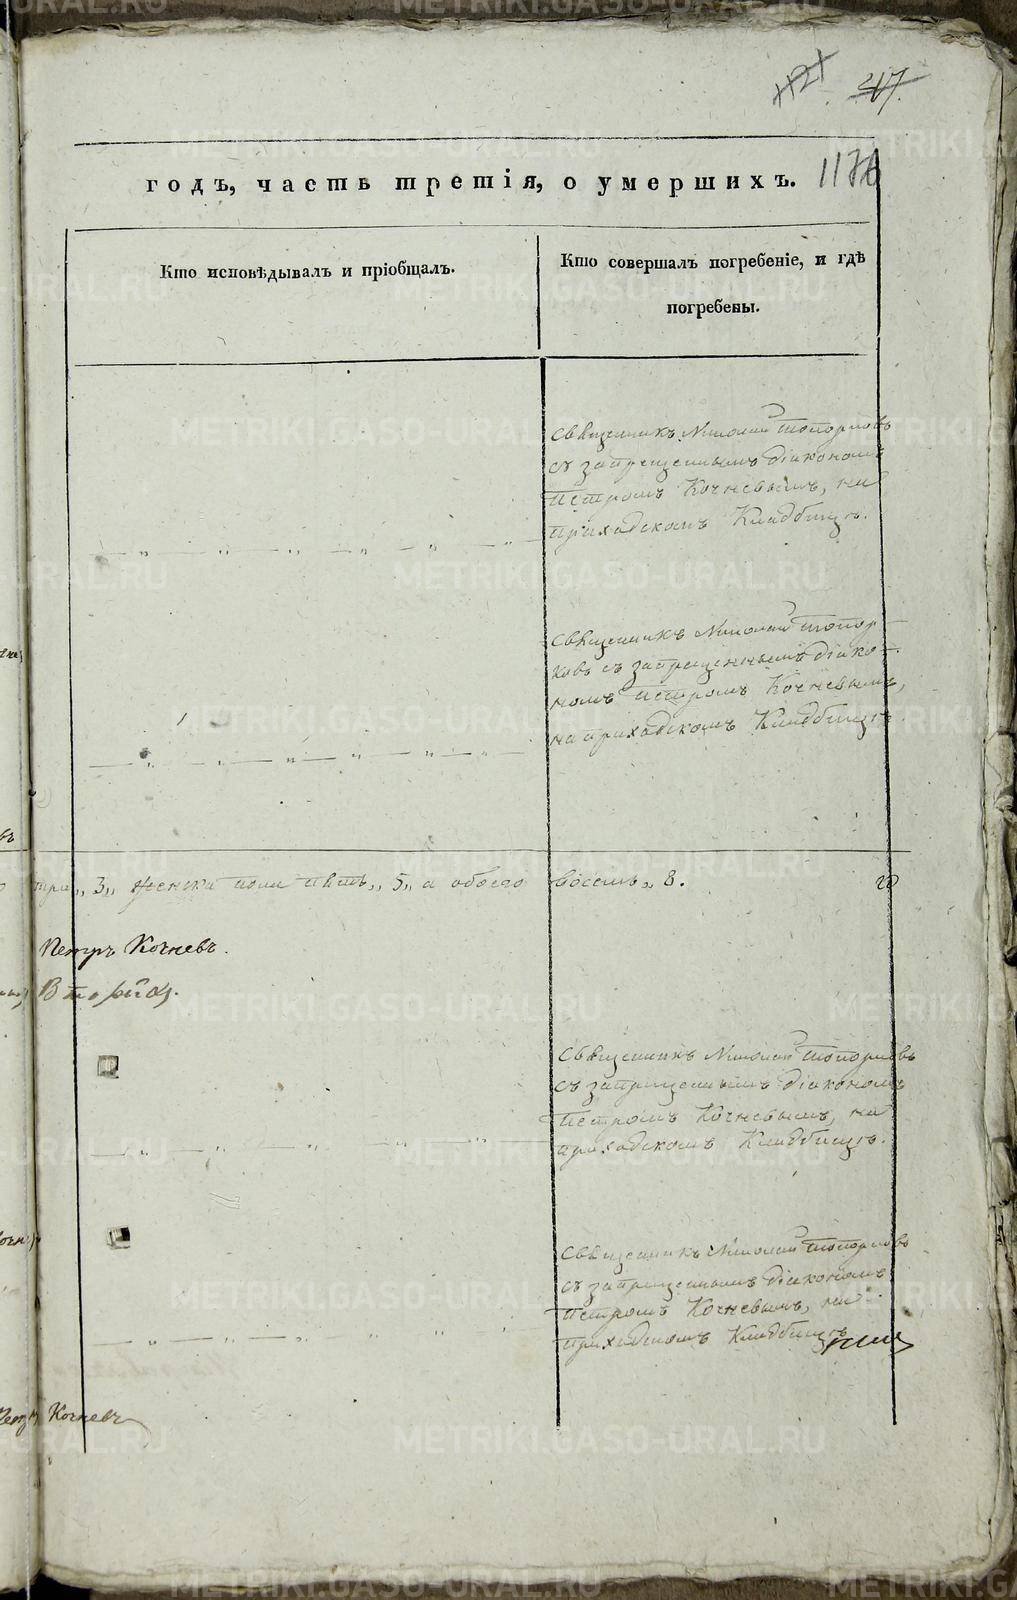 317.
1176
годъ, часть третія, о умершихъ.
Кто исповѣдывалъ и пріобщалъ.
Кто совершалъ погребеніе, и гдѣ
погребены.
Священникъ Николай Топорковъ
съ запрещеннымъ діакономъ
Петромъ Кочневымъ, на
приходскомъ Кладбищѣ.
Священникъ Николай Топор-
ковъ съ запрещеннымъ діако-
номъ Петромъ Кочневымъ,
на приходскомъ Кладбищѣ.
три„ 3„ женска пола пять„ 5„ а обоего восемь„ 8.
Петръ Кочневъ.
Вторый
Священникъ Николай Топорковъ
съ запрещеннымъ діакономъ
Петромъ Кочневымъ, на
приходскомъ Кладбищѣ.
Священникъ Николай Топорковъ
съ запрещеннымъ діакономъ
Петромъ Кочневымъ, на
приходскомъ Кладбищѣ
Петръ Кочневъ
METRIKI.GASO-URAL.RU